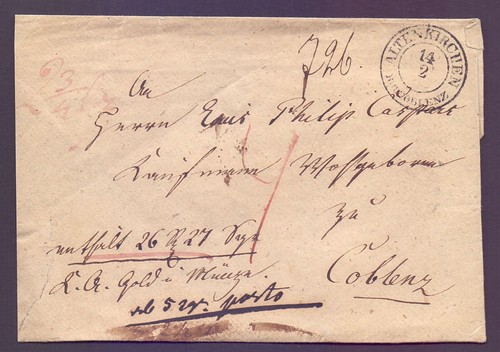 726.
ALTENKIRCHEN
14
2
R.B. COBLENZ
An
Herrn Louis Philip
Kaufmann Wohlgeboren
zu
Coblenz
enthält 26 27 Sgr
K. A. Gold u Münze.
ab 5 porto